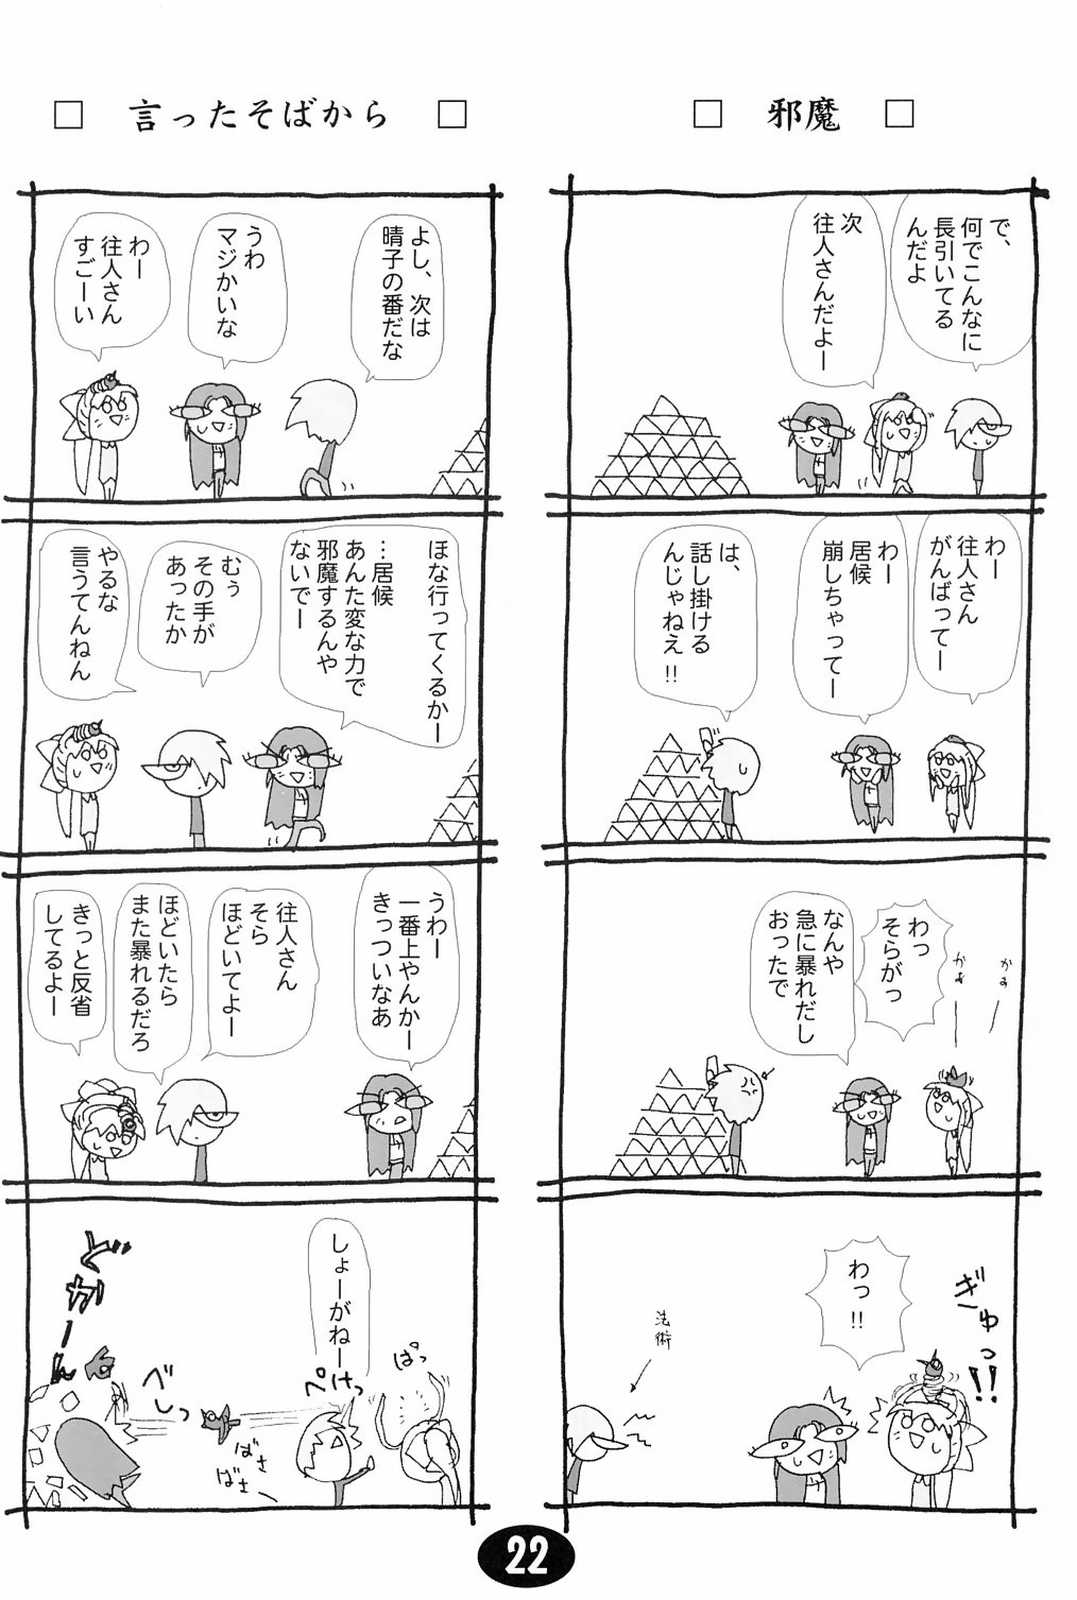 □ 邪魔 □
で、
何でこんなに
長引いてる
んだよ
次
往人さんだよー
わー
往人さん
がんばってー
わー
居候
崩しちゃってー
は、
話し掛ける
んじゃねえ!!
かぁ
かぁ
わっ
そらがっ
なんや
急に暴れだし
おったで
ぎーゅっ!!
わっ!!
法術
□ 言ったそばから □
よし、次は
晴子の番だな
うわ
マジかいな
わー
往人さん
すごーい
ほな行ってくるかー
…居候
あんた変な力で
邪魔するんや
ないでー
むぅ
その手が
あったか
やるな
言うてんねん
うわー
一番上やんかー
きっついなあ
往人さん
そら
ほどいてよー
ほどいたら
また暴れるだろ
きっと反省
してるよー
しょーがねー
ぱっ
ぺけっ
ばさ
ばさ
べしっ
どがーん
22